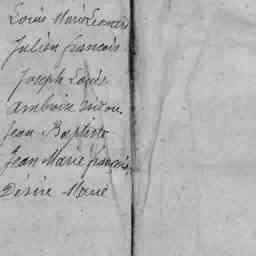 Louis Marie
Julien francois
Joseph Louis
Ambroise
Jean Baptiste
Jean Marie francois
Désiré Marie